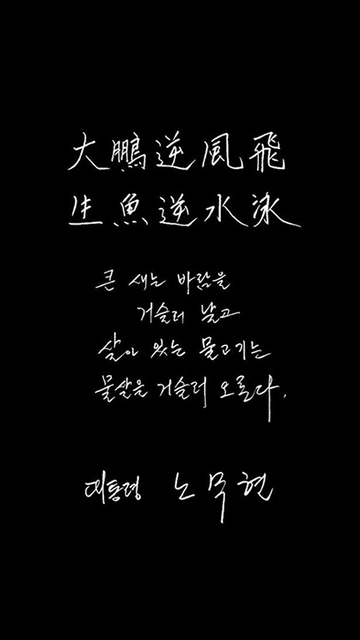 大鵬逆風飛
生魚逆水泳
큰 새는 바람을
거슬러 날고
살아 있는 물고기는
물살을 거슬러 오른다.
대통령 노무현